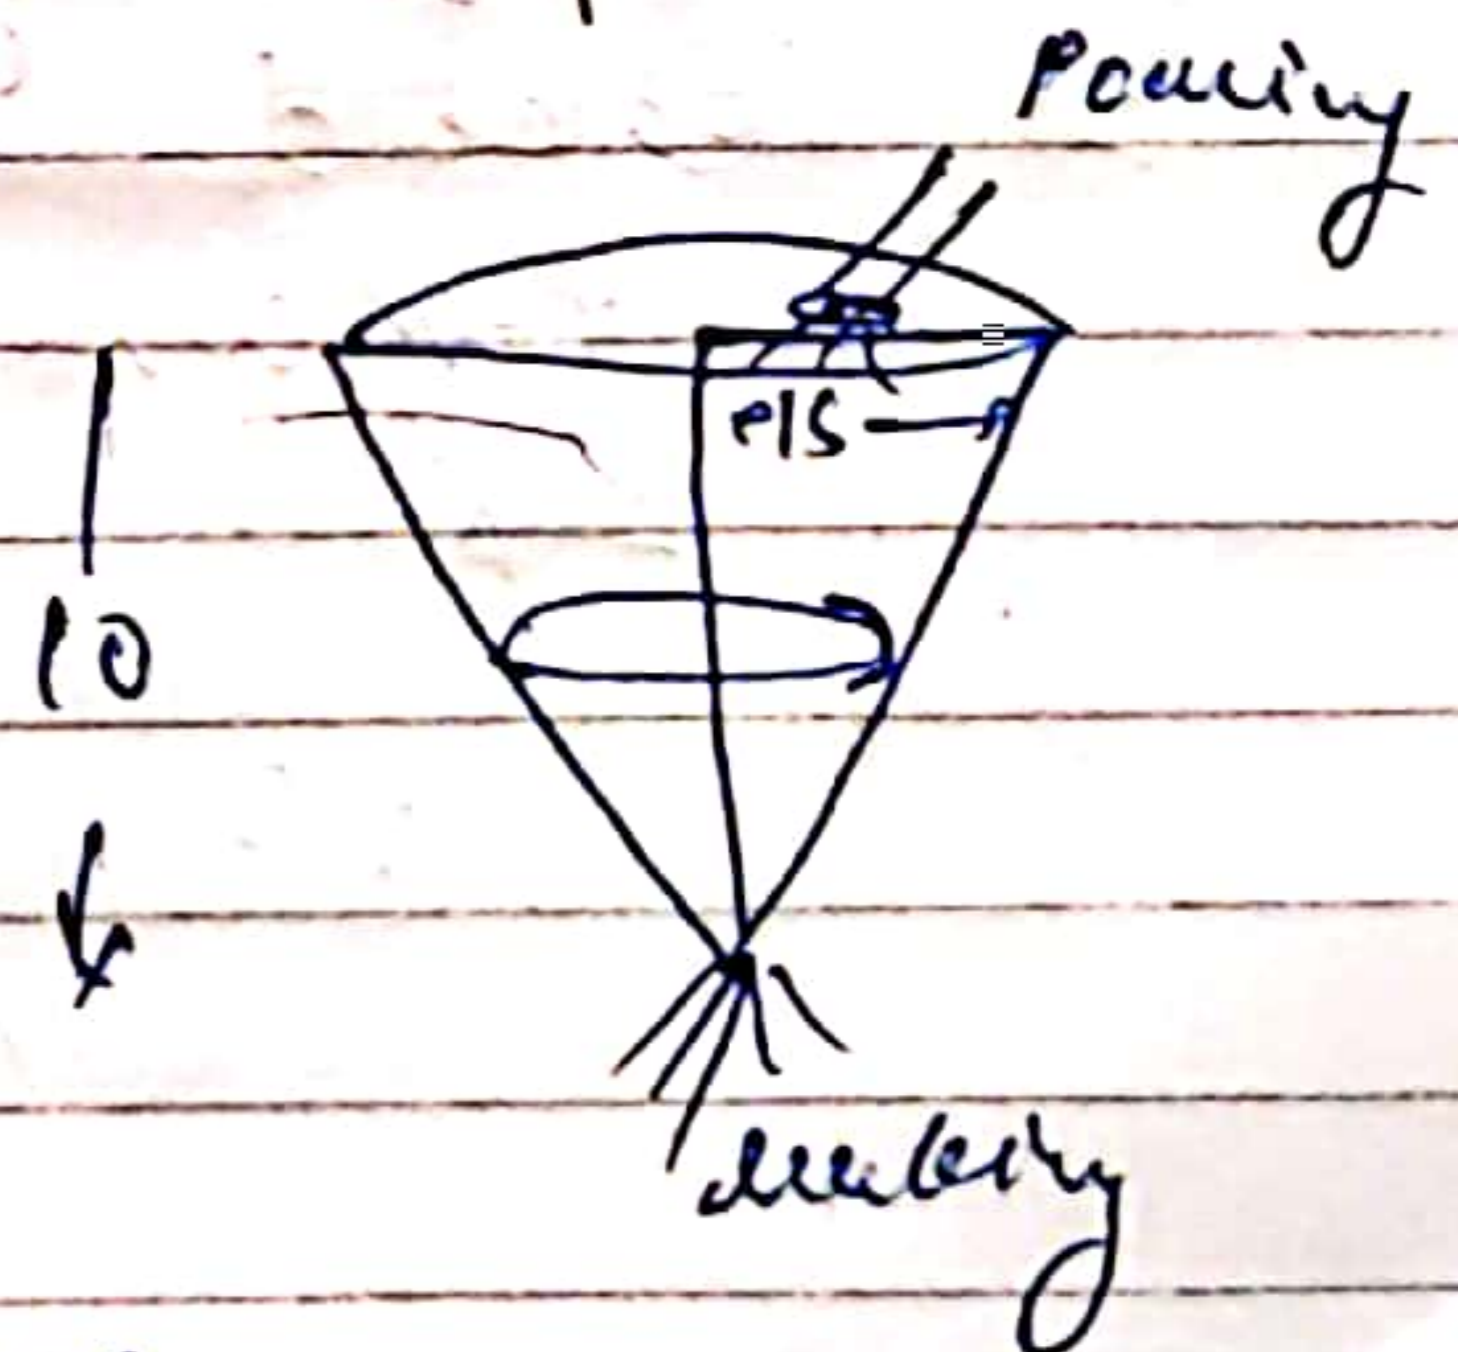 Pouring
els
10
leaking